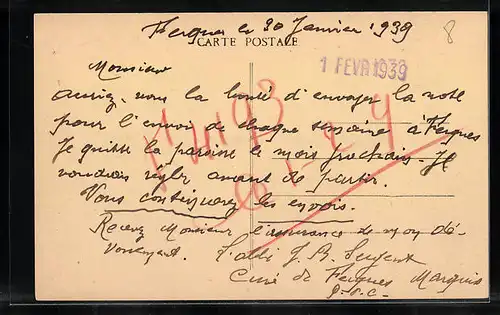 Ferques le 30 Janvier 1939
8
CARTE POSTALE
1 FEVR 1939
Monsieur
auriez-vous la bonté d'envoyer la note
pour l'envoi de chaque semaine à Ferques
Je quitte la paroisse le mois prochain - Je
voudrais régler avant de partir.
Vous continuerez les envois.
Recevez Monsieur l'assurance de mon dé-
vouement. L'abbé J. B.
Curé de Ferques Marquise
P-d-C-